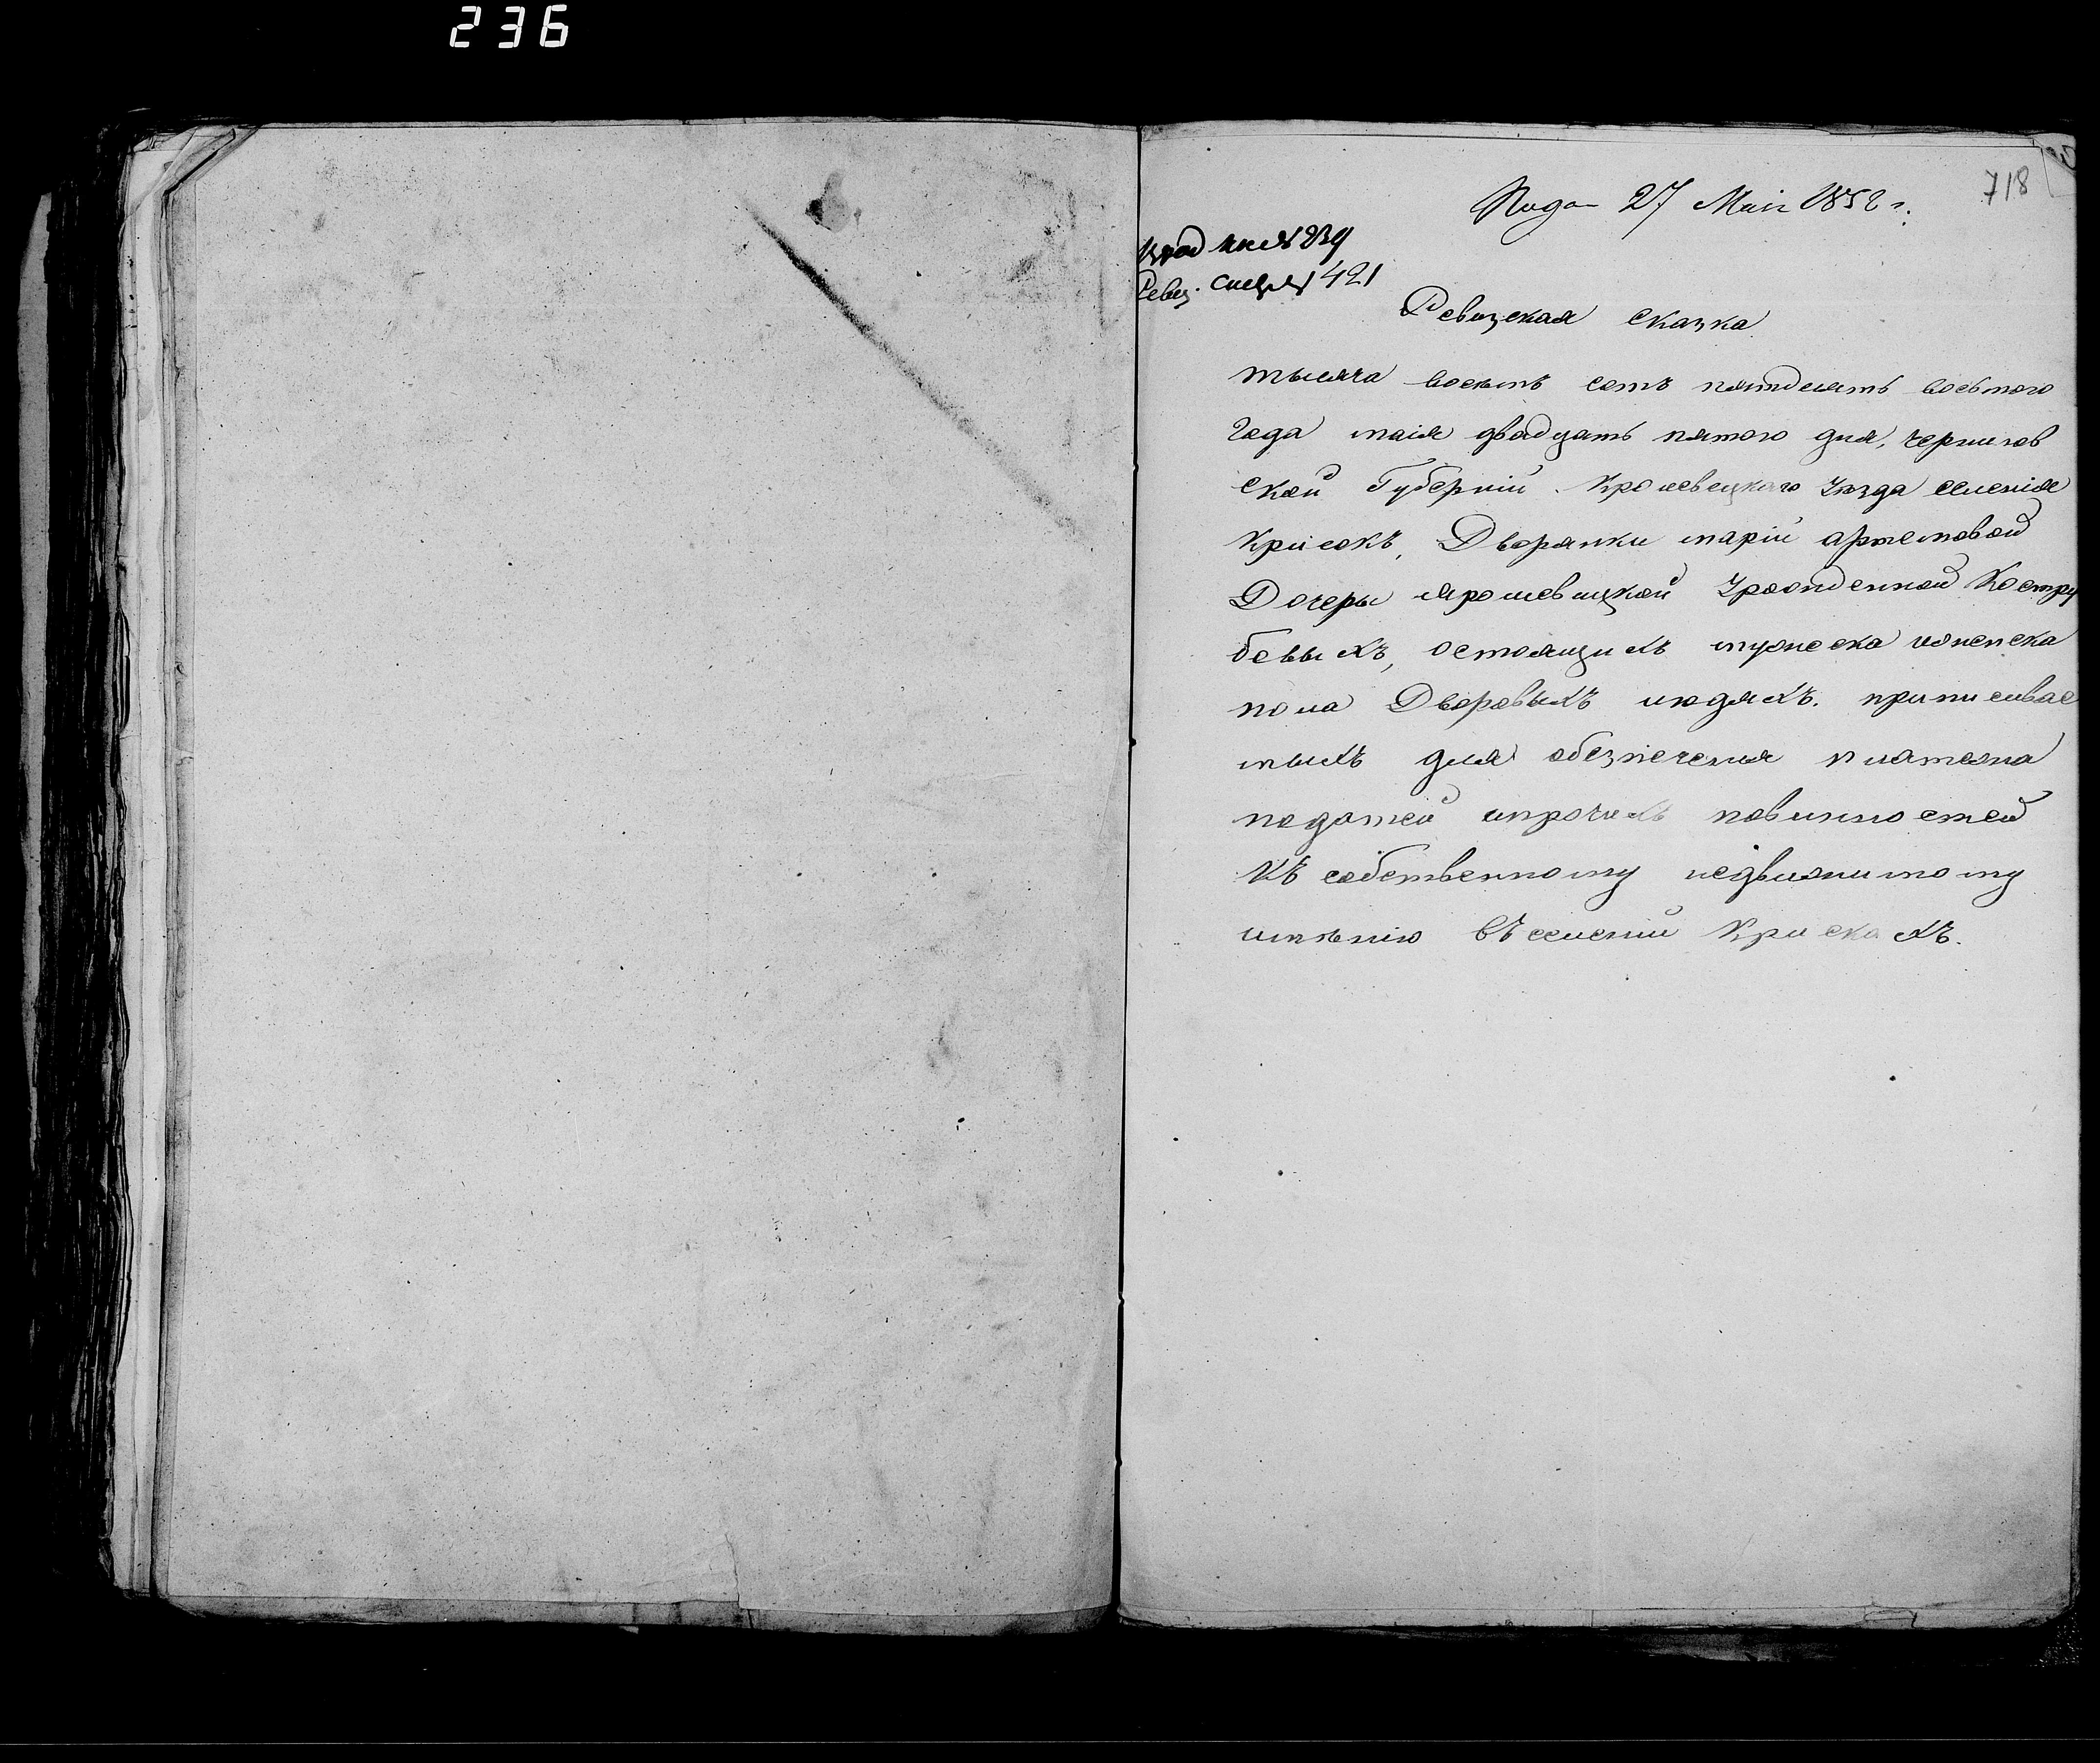 236
718
Пода 27 Маія 1858 г.
№ 239
Ревиз. 421
Ревизская сказка
тысяча восемь сотъ пятдесятъ восьмого
Года маія двадцать пятого дня, чернигов
ской Губерніи Кролевецкого уѣзда селенія
Крисокъ, Дворянки маріи артемовой
Дочеры ярошевицкой урожденной Костру
бовыхъ, остоящихъ мужеска иженска
пола Дворовыхъ людяхъ. приписывае
мыхъ для обезпеченія платежа
податей ипрочихъ повинностей
Къ собственному недвижимому
имѣнію въ селеніи Крискахъ.